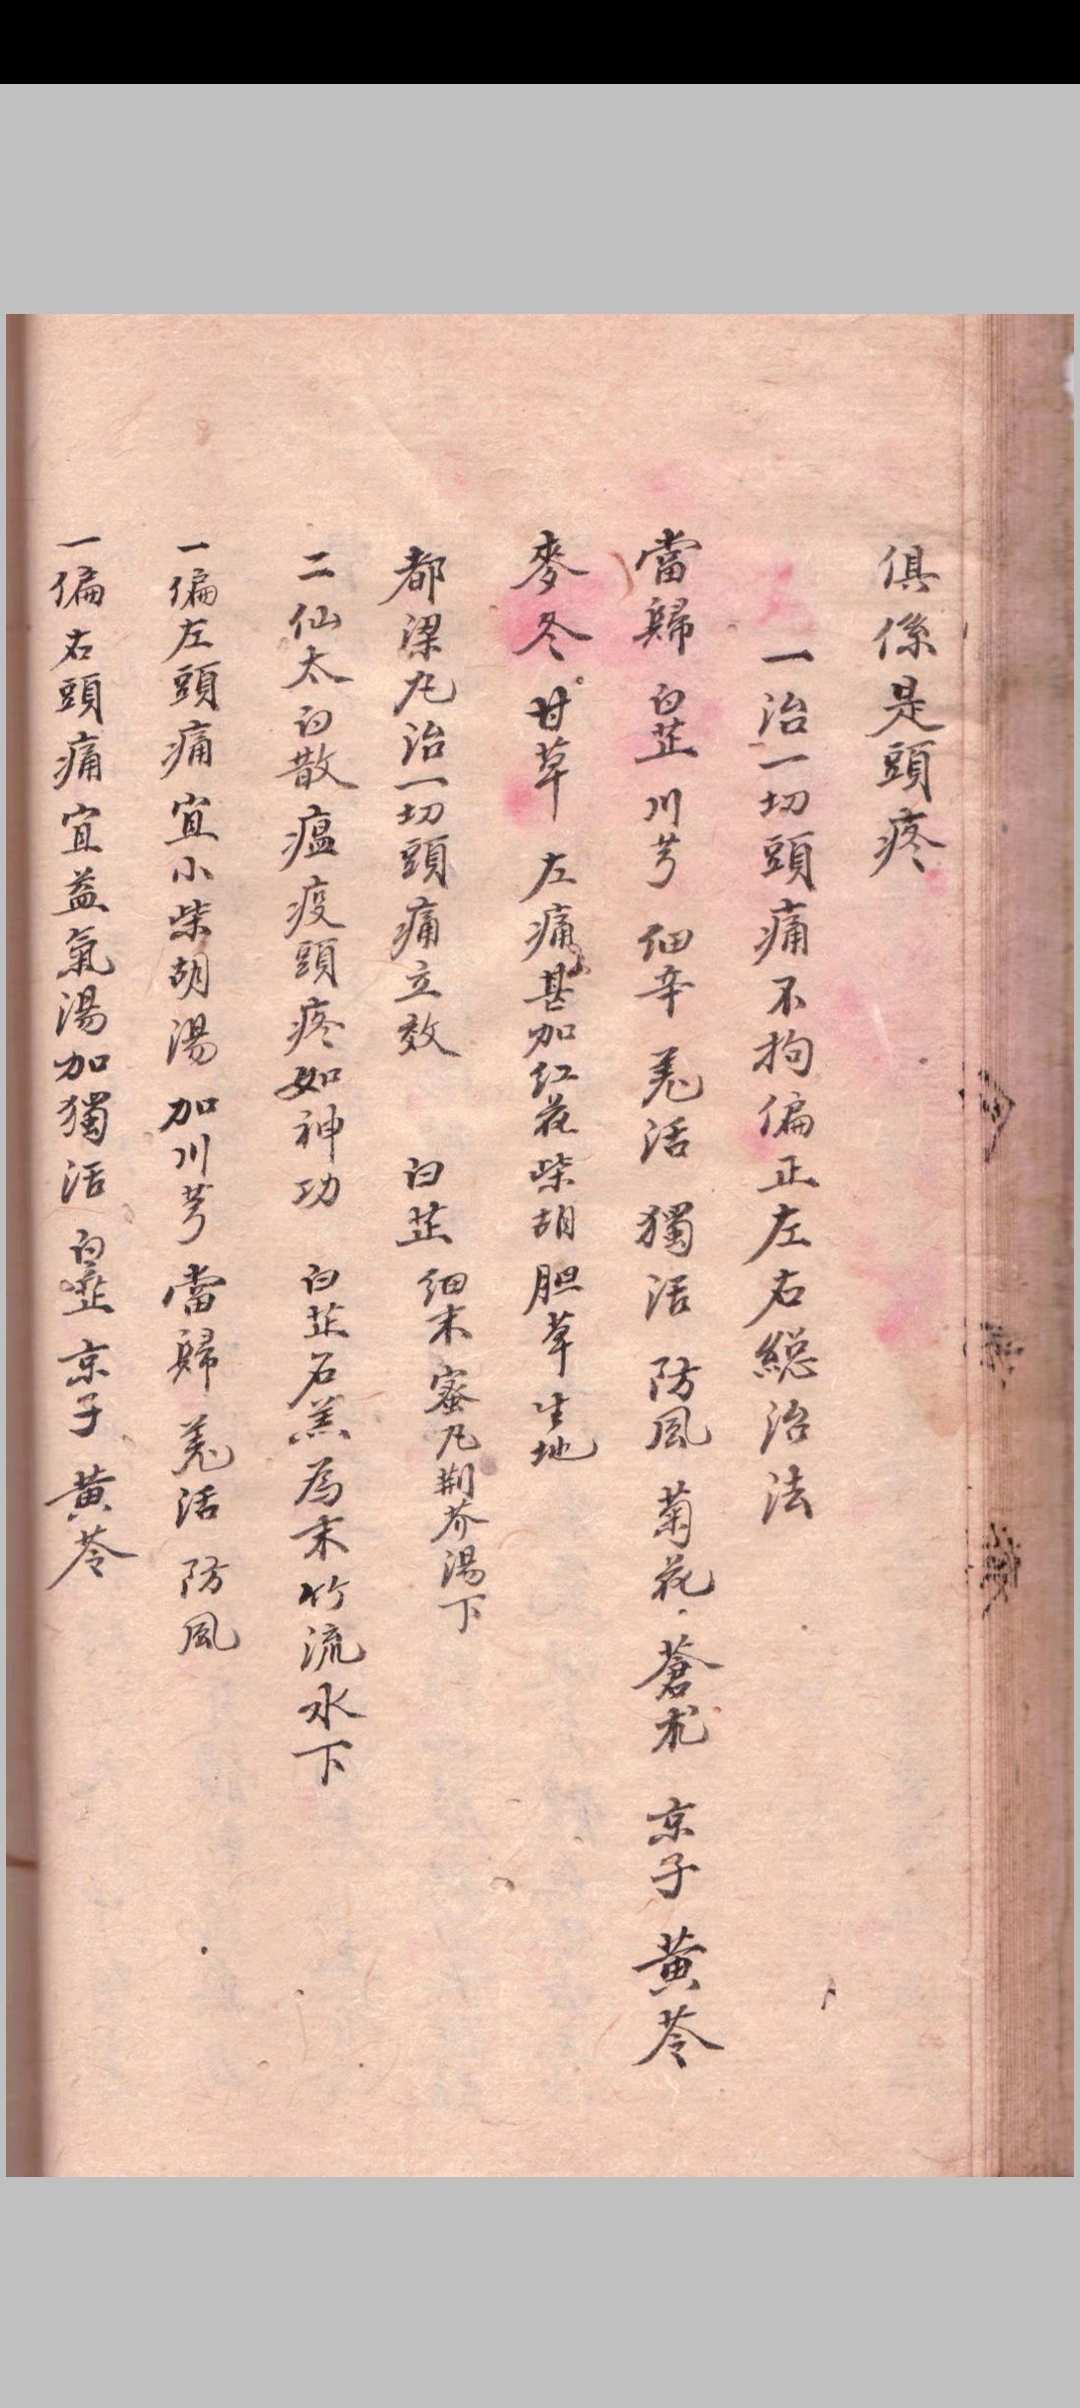 俱係是頭疼
一治一切頭痛不拘偏正左右総治法
當歸 白芷 川芎 細辛 羌活 獨活 防風 菊花 蒼朮 京子 黄芩
麥冬 甘草 左痛甚加红花柴胡胆草生地
都梁丸治一切頭痛立效 白芷 細末蜜丸荆芥湯下
二仙太白散瘟疫頭疼如神功 白芷石羔為末竹流水下
一偏左頭痛宜小柴胡湯加川芎當歸羌活防風
一偏右頭痛宜益氣湯加獨活白芷京子黄芩